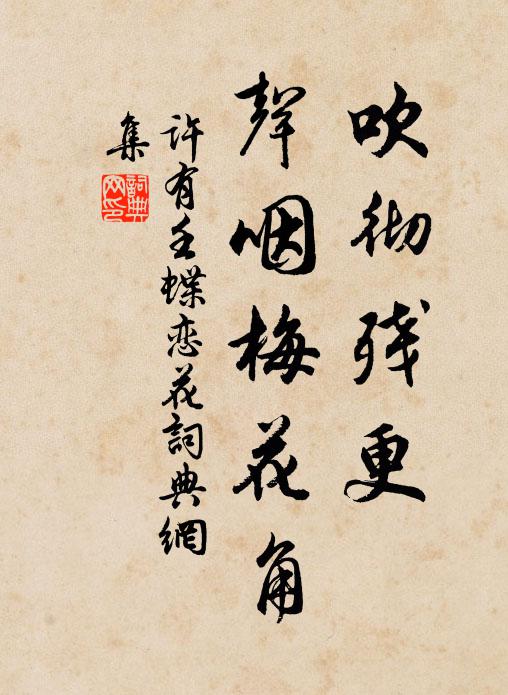 吹彻残更
聲咽梅花角
许有壬蝶恋花詞典網
集
詞典
网印